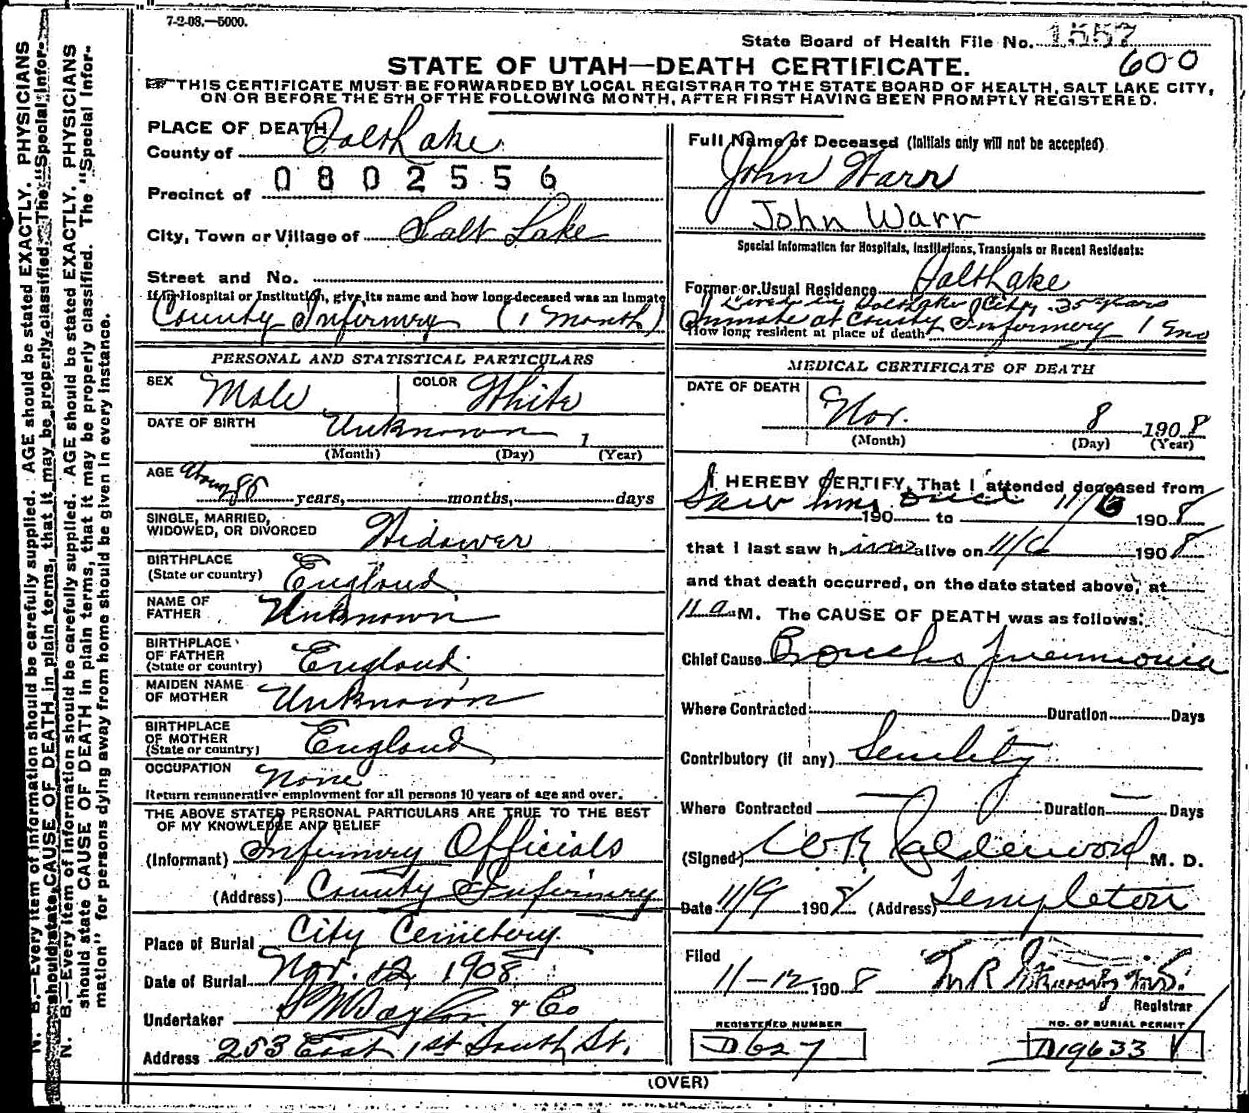 7-2-08.—5000.
State Board of Health File No. 1557
600
STATE OF UTAH—DEATH CERTIFICATE.
THIS CERTIFICATE MUST BE FORWARDED BY LOCAL REGISTRAR TO THE STATE BOARD OF HEALTH, SALT LAKE CITY,
ON OR BEFORE THE 5TH OF THE FOLLOWING MONTH, AFTER FIRST HAVING BEEN PROMPTLY REGISTERED.
PLACE OF DEATH
County of Salt Lake
Precinct of 0802556
City, Town or Village of Salt Lake
Street and No.
If in Hospital or Institution, give its name and how long deceased was an Inmate
County Infirmry (1 Month)
PERSONAL AND STATISTICAL PARTICULARS
SEX Male COLOR White
DATE OF BIRTH Unknown 1
(Month) (Day) (Year)
AGE About 88 years, months, days
SINGLE, MARRIED,
WIDOWED, OR DIVORCED Widower
BIRTHPLACE
(State or country) England
NAME OF
FATHER Unknown
BIRTHPLACE
OF FATHER
(State or country) England
MAIDEN NAME
OF MOTHER Unknown
BIRTHPLACE
OF MOTHER
(State or country) England
OCCUPATION None
Return remunerative employment for all persons 10 years of age and over.
THE ABOVE STATED PERSONAL PARTICULARS ARE TRUE TO THE BEST
OF MY KNOWLEDGE AND BELIEF
(Informant) Infirmry Officials
(Address) County Infirmry
Place of Burial City Cemetery
Date of Burial Nov. 12 1908
Undertaker S M Taylor & Co
Address 253 East 1st South St.
Full Name of Deceased (Initials only will not be accepted)
John Warr
John Warr
Special Information for Hospitals, Institutions, Transients or Recent Residents:
Former or Usual Residence Salt Lake
Lived in Salt Lake City 35 years
Inmate at County Infirmery 1 mo
How long resident at place of death
MEDICAL CERTIFICATE OF DEATH
DATE OF DEATH Nov. 8 1908
(Month) (Day) (Year)
I HEREBY CERTIFY, That I attended deceased from
Saw him once 11/6
190 to 1908
that I last saw him alive on 11/6 1908
and that death occurred, on the date stated above, at
11 a. M. The CAUSE OF DEATH was as follows:
Chief Cause Broncho Pneumonia
Where Contracted Duration Days
Contributory (if any) Senility
Where Contracted — Duration — Days
(Signed) W R Calderwood M. D.
Date 11/9 1908 (Address) Templeton
Filed
11-12 1908
Registrar
REGISTERED NUMBER
D627
NO. OF BURIAL PERMIT
D19633
(OVER)
N. B.—Every item of information should be carefully supplied. AGE should be stated EXACTLY. PHYSICIANS
should state CAUSE OF DEATH in plain terms, that it may be properly classified. The "Special Infor-
N. B.—Every item of information should be carefully supplied. AGE should be stated EXACTLY. PHYSICIANS
should state CAUSE OF DEATH in plain terms, that it may be properly classified. The "Special Infor-
mation" for persons dying away from home should be given in every instance.